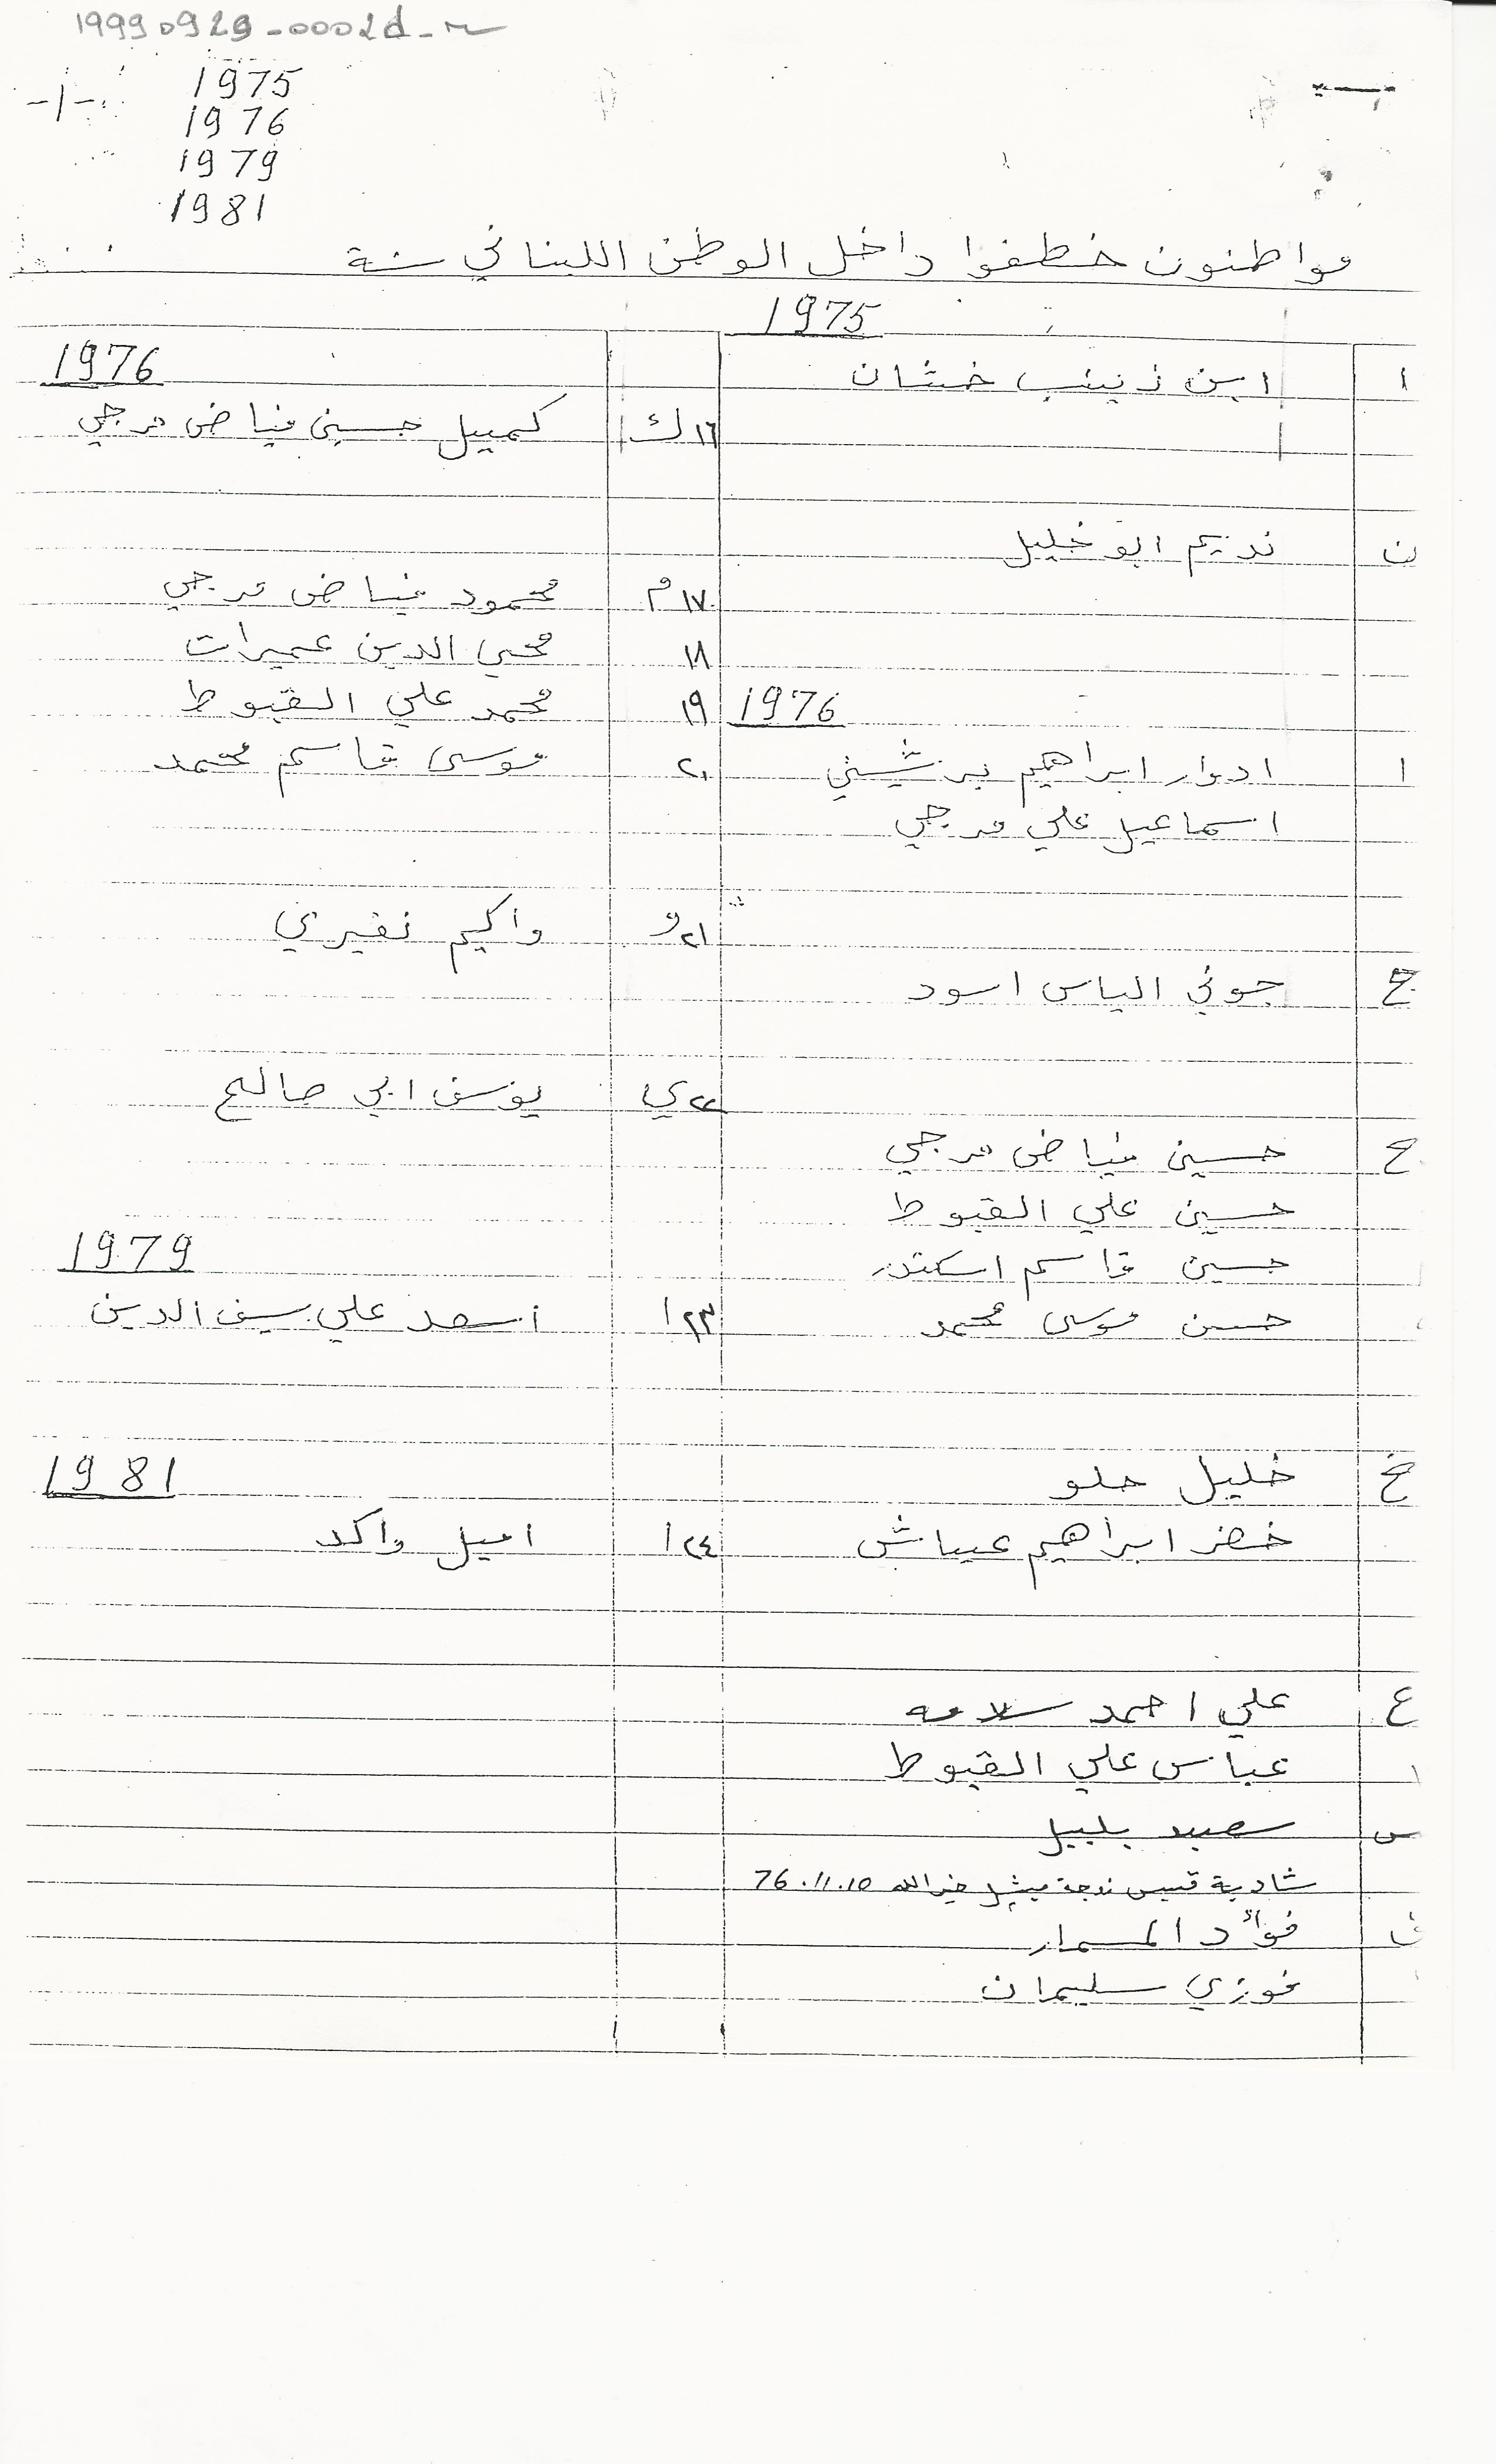 19990929-0002d-~
1975
-1-
1976
1979
1981
مواطنون خطفوا داخل الوطن اللبناني سنة
1975
ا ابن زينب خشان
ن نديم ابو خليل
1976
ا ادوار ابراهيم برشيني
اسماعيل علي مرجي
ج جوني الياس اسود
ح حسين فياض مرجي
حسين علي القبوط
حسين قاسم اسكندر
حسن موسى محمد
خ خليل حلو
خضر ابراهيم عياش
ع علي احمد سلامه
عباس علي القبوط
س سعيد بليبل
شادية قبيس زوجة ميشيل خيرالله 76.11.15
ف فؤاد المسمار
فوزي سليمان
1976
١٦ ك كميل حسين فياض مرجي
١٧ م محمود فياض مرجي
١٨ محيي الدين عميرات
١٩ محمد علي القبوط
٢٠ موسى قاسم محمد
٢١ و واكيم نفيري
٢٢ ي يوسف ابي صالح
1979
٢٣ ا اسعد علي سيف الدين
1981
٢٤ ا اميل واكد